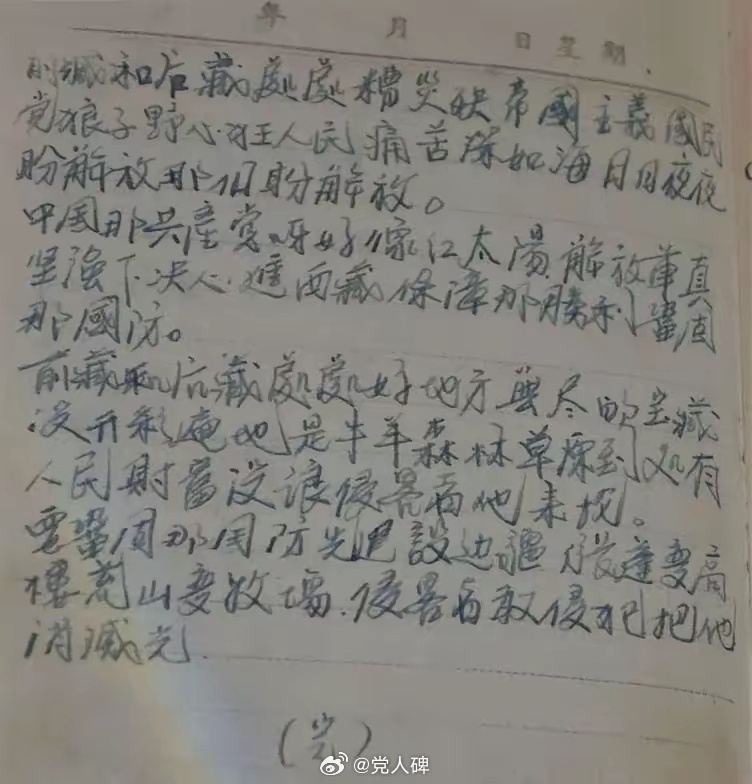 年 月 日 星期
前藏和后藏處處糟災殃帝國主義國民
党狼子野心狂人民痛苦深如海日日夜夜
盼解放那個盼解放。
中国那共產党呀好像红太陽解放軍真
坚强下决心進西藏保障那勝利鞏固
那國防。
前藏和后藏處處好地方無尽的宝藏
没开彩遍地是牛羊森林草原到处有
人民財富没浪侵畧者他来抢。
要鞏固那国防先建設边疆帐蓬变高
楼荒山变牧場.侵畧者敢侵犯把他
消滅光
(完)
@党人碑